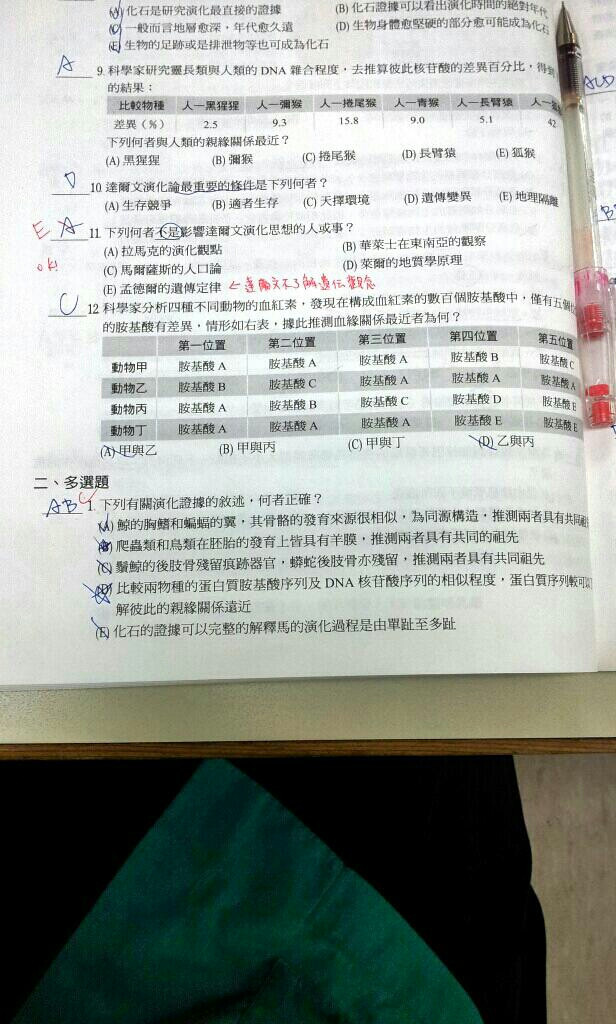 (A) 化石是研究演化最直接的證據 (B) 化石證據可以看出演化時間的絕對年代
(C) 一般而言地層愈深，年代愈久遠 (D) 生物身體愈堅硬的部分愈可能成為化石
(E) 生物的足跡或是排泄物等也可成為化石
A 9. 科學家研究靈長類與人類的 DNA 雜合程度，去推算彼此核苷酸的差異百分比，得到
的結果：
比較物種 人—黑猩猩 人—獼猴 人—捲尾猴 人—青猴 人—長臂猿 人—狐
差異（%） 2.5 9.3 15.8 9.0 5.1 42
下列何者與人類的親緣關係最近？
(A) 黑猩猩 (B) 獼猴 (C) 捲尾猴 (D) 長臂猿 (E) 狐猴
D 10. 達爾文演化論最重要的條件是下列何者？
(A) 生存競爭 (B) 適者生存 (C) 天擇環境 (D) 遺傳變異 (E) 地理隔離
E A 11. 下列何者不是影響達爾文演化思想的人或事？
(A) 拉馬克的演化觀點 (B) 華萊士在東南亞的觀察
ok! (C) 馬爾薩斯的人口論 (D) 萊爾的地質學原理
(E) 孟德爾的遺傳定律 ← 達爾文不了解遺伝觀念
C 12 科學家分析四種不同動物的血紅素，發現在構成血紅素的數百個胺基酸中，僅有五個位
的胺基酸有差異，情形如右表，據此推測血緣關係最近者為何？
第一位置 第二位置 第三位置 第四位置 第五位置
動物甲 胺基酸 A 胺基酸 A 胺基酸 A 胺基酸 B 胺基酸 C
動物乙 胺基酸 B 胺基酸 C 胺基酸 A 胺基酸 A 胺基酸 A
動物丙 胺基酸 A 胺基酸 B 胺基酸 C 胺基酸 D 胺基酸 E
動物丁 胺基酸 A 胺基酸 A 胺基酸 A 胺基酸 E 胺基酸 E
(A) 甲與乙 (B) 甲與丙 (C) 甲與丁 (D) 乙與丙
二、多選題
ABC 1. 下列有關演化證據的敘述，何者正確？
(A) 鯨的胸鰭和蝙蝠的翼，其骨骼的發育來源很相似，為同源構造，推測兩者具有共同祖
(B) 爬蟲類和鳥類在胚胎的發育上皆具有羊膜，推測兩者具有共同的祖先
(C) 鬚鯨的後肢骨殘留痕跡器官，蟒蛇後肢骨亦殘留，推測兩者具有共同祖先
(D) 比較兩物種的蛋白質胺基酸序列及 DNA 核苷酸序列的相似程度，蛋白質序列較可以
解彼此的親緣關係遠近
(E) 化石的證據可以完整的解釋馬的演化過程是由單趾至多趾